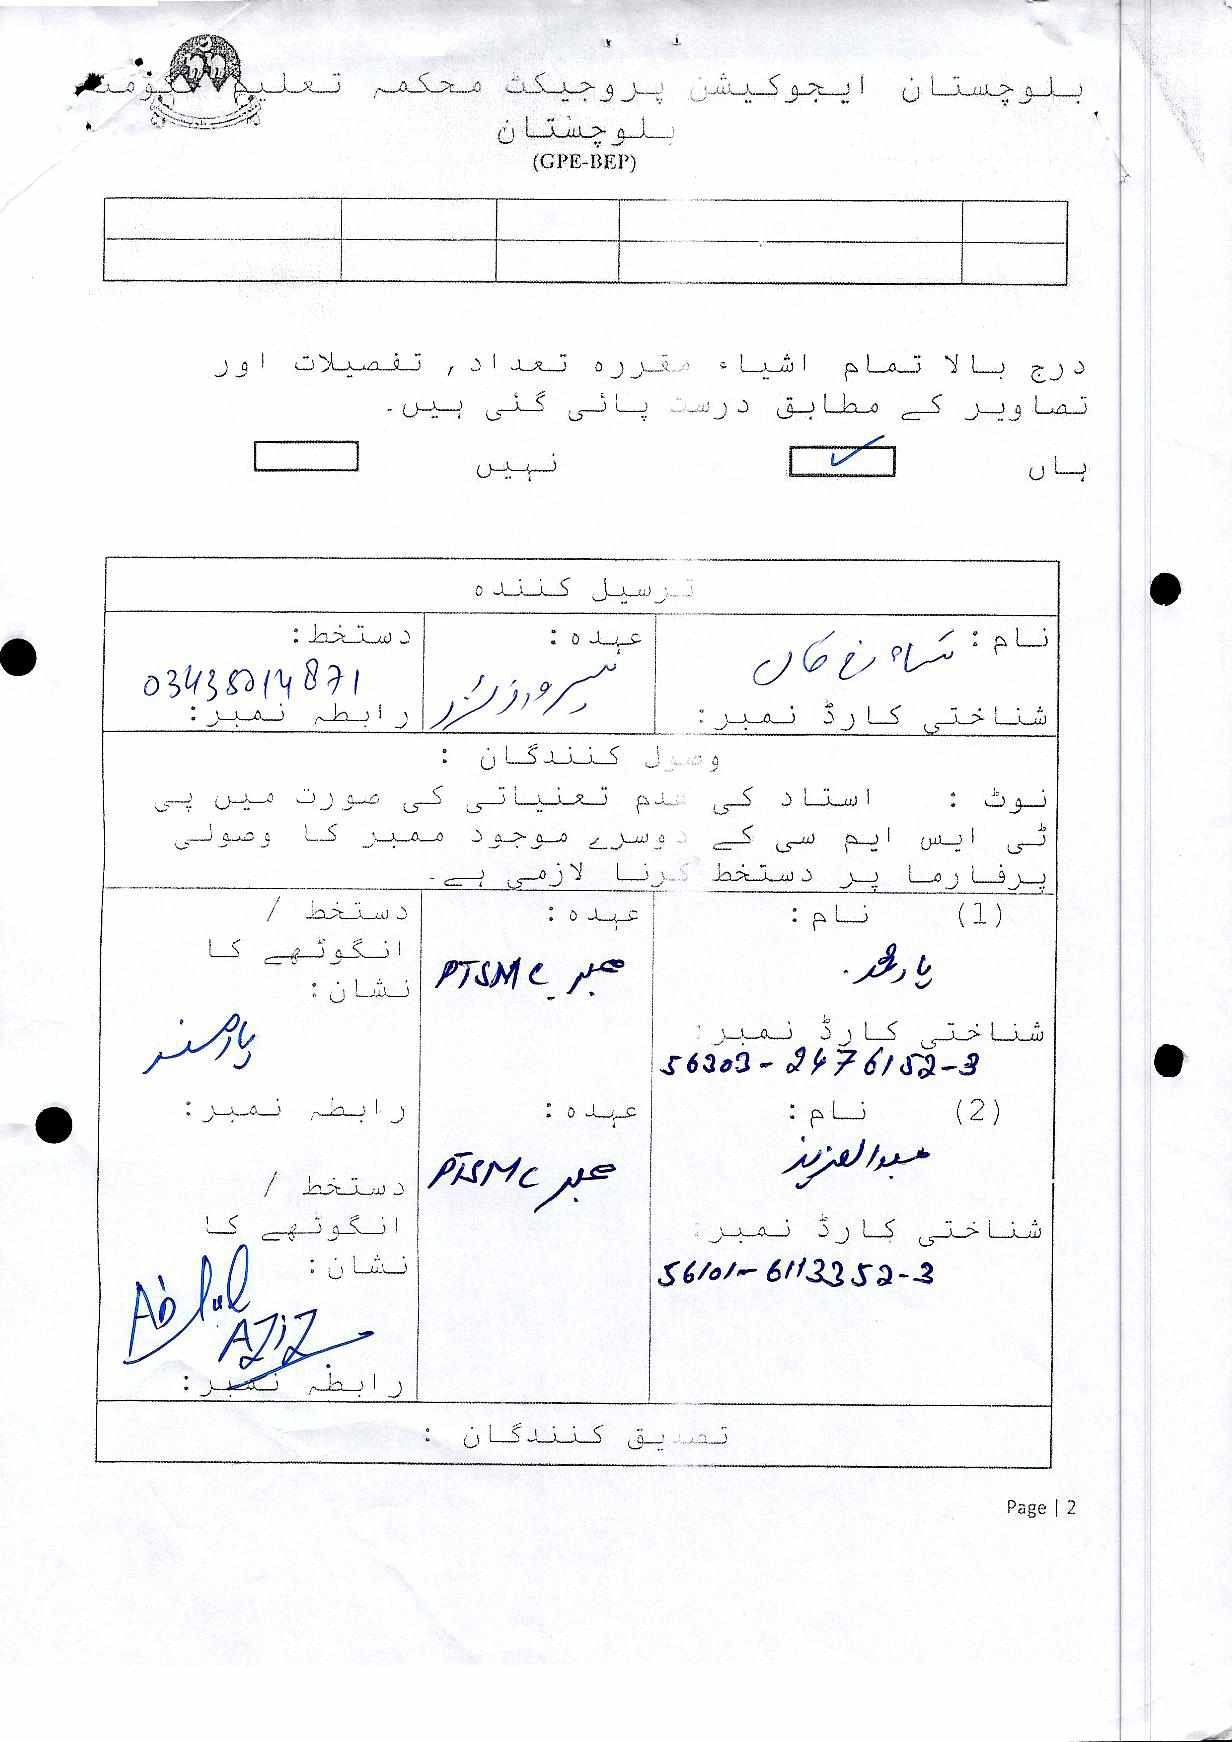 بلوچستان ایجوکیشن پروجیکٹ محکمہ تعلیم حکومت
بلوچستان
(GPE-BEP)
درج بالا تمام اشیاء مقررہ تعداد, تفصیلات اور
تصاویر کے مطابق درست پائی گئی ہیں۔
ہاں نہیں
ترسیل کنندہ
نام: شاہ رخ خان عہدہ: دستخط:
03435014871
شناختی کارڈ نمبر: رابطہ نمبر:
وصول کنندگان :
نوٹ : استاد کی عدم تعنیاتی کی صورت میں پی
ٹی ایس ایم سی کے دوسرے موجود ممبر کا وصولی
پرفارما پر دستخط کرنا لازمی ہے۔
(1) نام: عہدہ: دستخط /
انگوٹھے کا
نشان:
یار محمد ممبر PTSMC
شناختی کارڈ نمبر:
56303-2476152-3
(2) نام: عہدہ: رابطہ نمبر:
عبدالعزیز ممبر PTSMC
دستخط /
انگوٹھے کا
نشان:
شناختی کارڈ نمبر:
56101-6113352-3
Abdul
AZIZ
رابطہ نمبر:
تصدیق کنندگان :
Page | 2